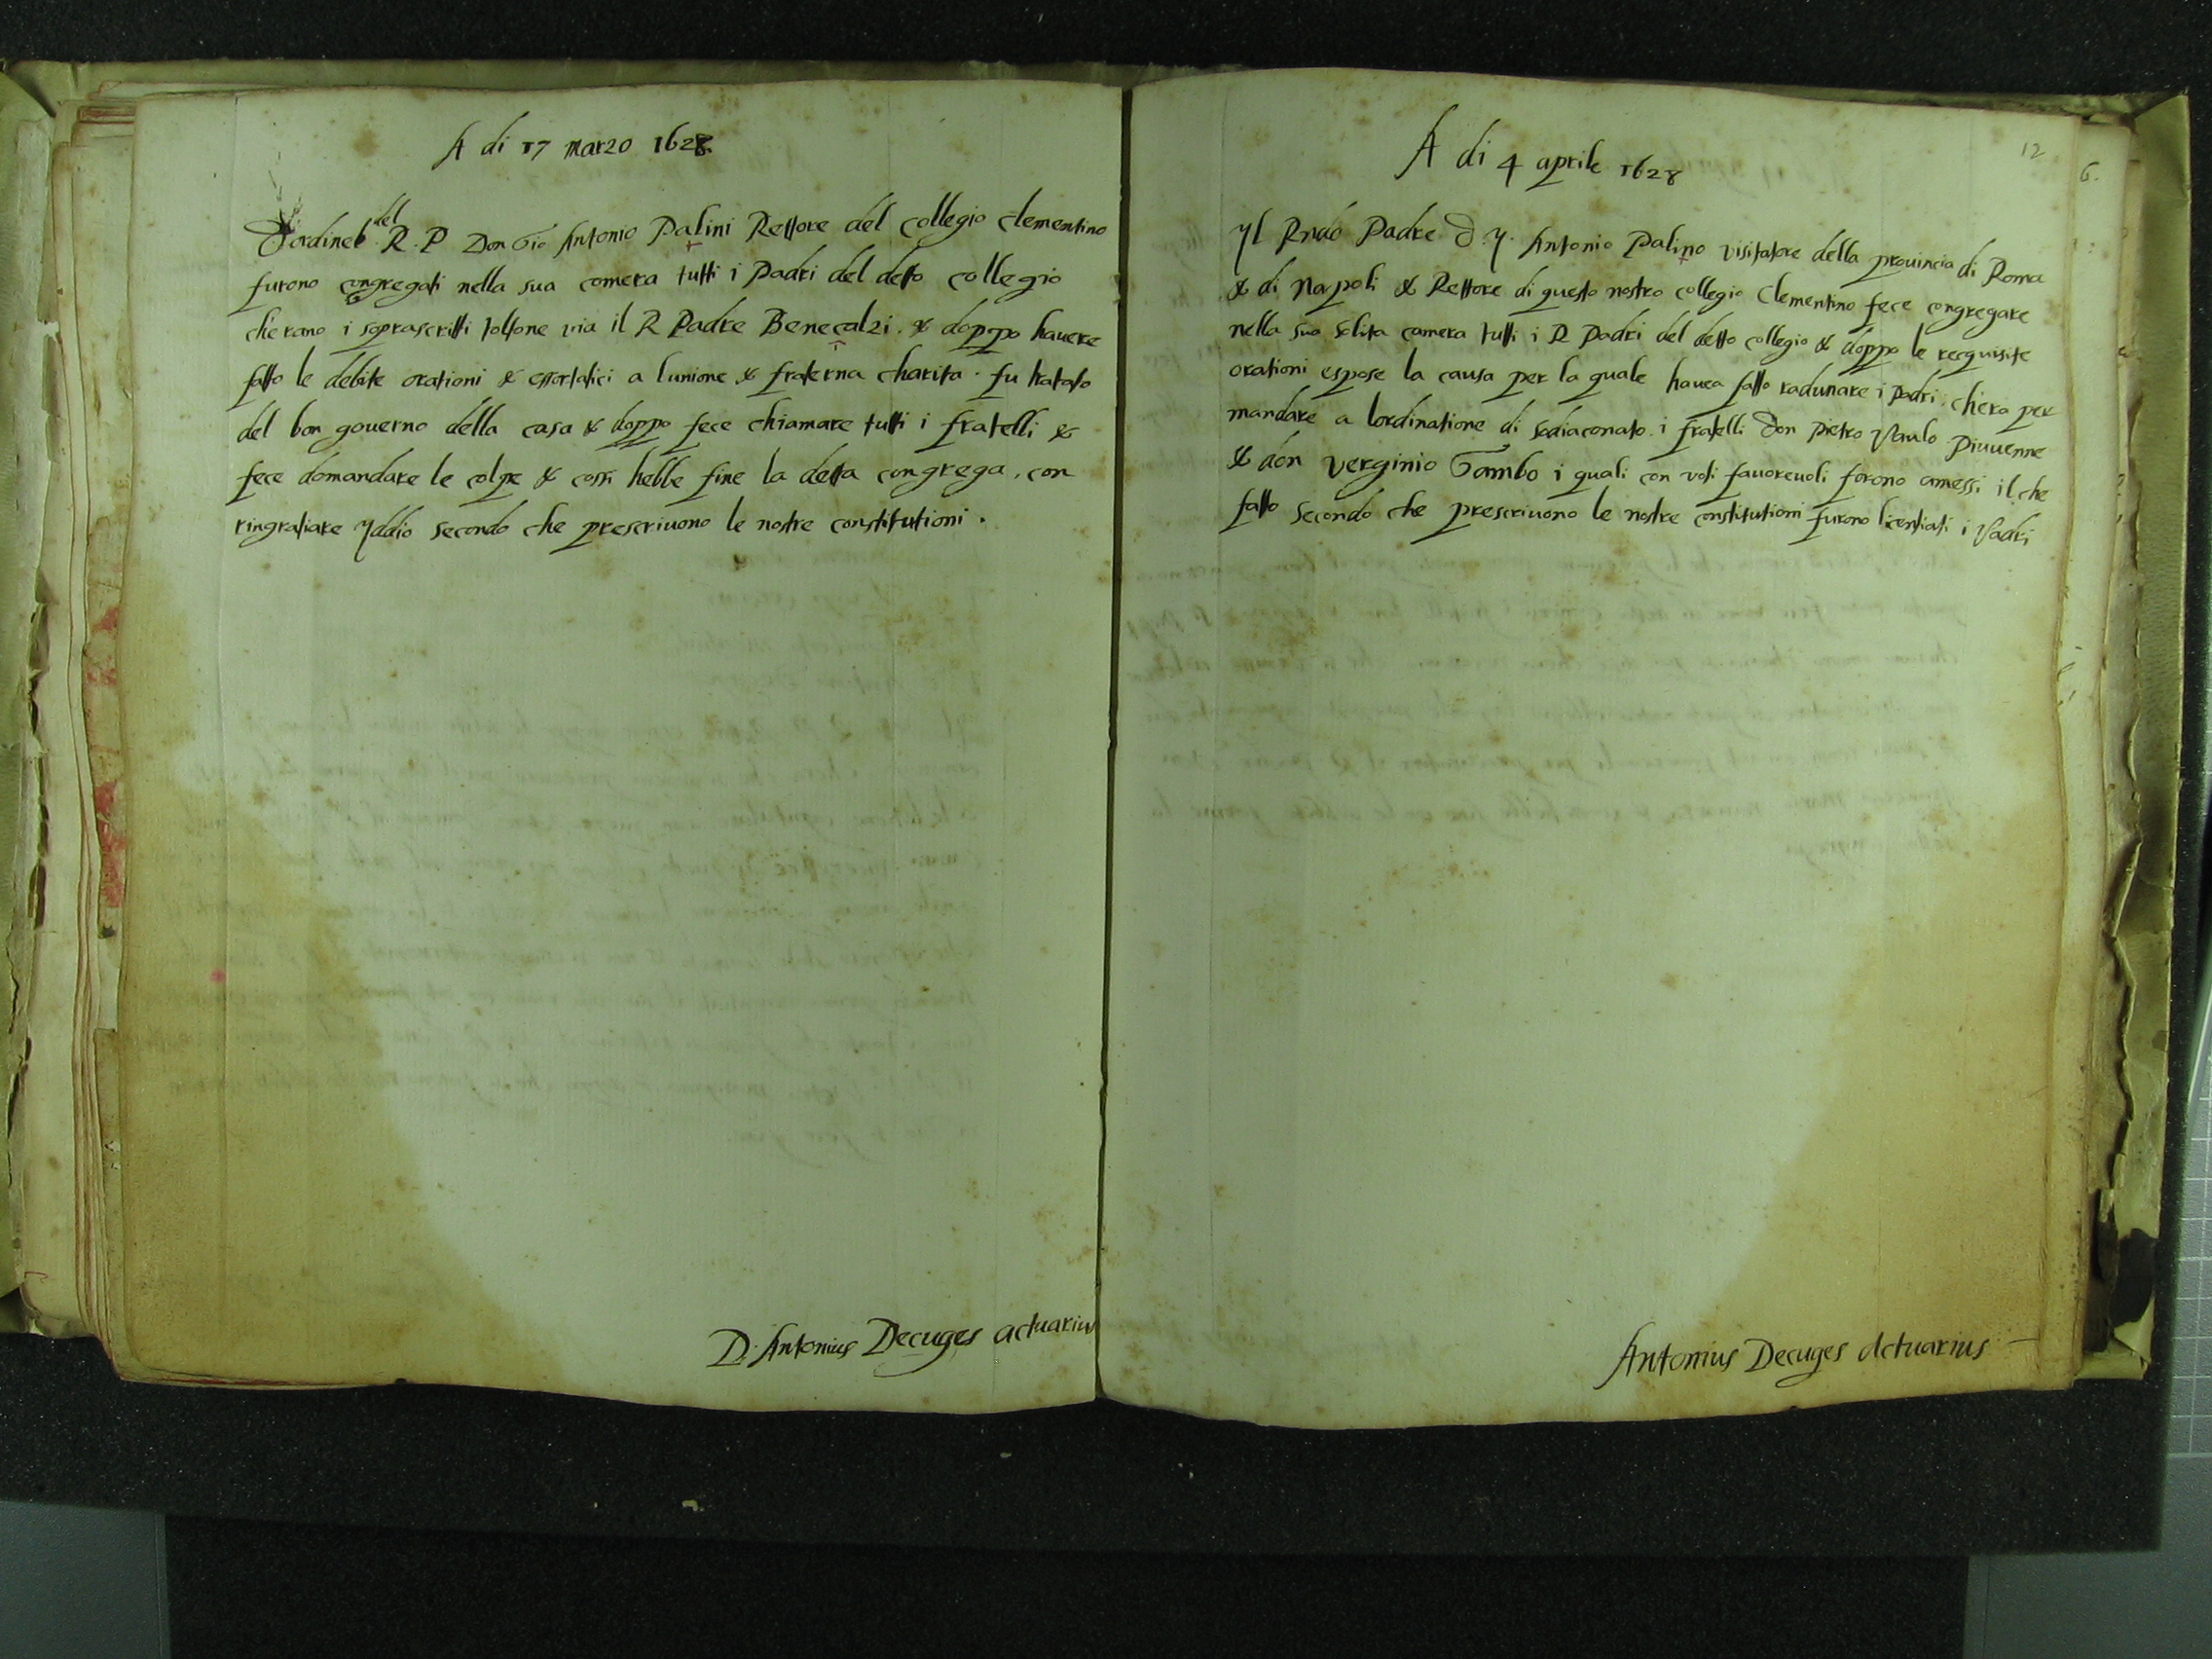 A di 17 marzo 1628.
D'ordine del R. P Don Gio Antonio Palini Rettore del collegio clementino
furono congregati nella sua comera tutti i Padri del detto collegio
cherano i soprascritti toltone via il R Padre Benecalzi. & doppo havere
fatto le debite orationi & essortatici a lunione & fraterna charita. fu tratato
del bon governo della casa & doppo fece chiamare tutti i fratelli &
fece domandare le colpe & cossi hebbe fine la detta congrega, con
ringratiare Yddio secondo che prescrivono le nostre constitutioni.
D. Antonius Decuges actuarius
12
6.
A di 4 aprile 1628
Yl Rndo Padre D. Y. Antonio Palino visitatore della provincia di Roma
& di Napoli & Rettore di questo nostro collegio Clementino fece congregare
nella sua solita camera tutti i R Padri del detto collegio & doppo le recquisite
orationi espose la causa per la quale havea fatto radunare i Padri, chera per
mandare a lordinatione di sodiaconato i fratelli Don Pietro Paulo Piuvenne
& don Verginio Gambo i quali con voti favorevoli forono amessi il che
fatto secondo che prescrivono le nostre constitutioni furono licentiati i Padri
Antonius Decuges Actuarius